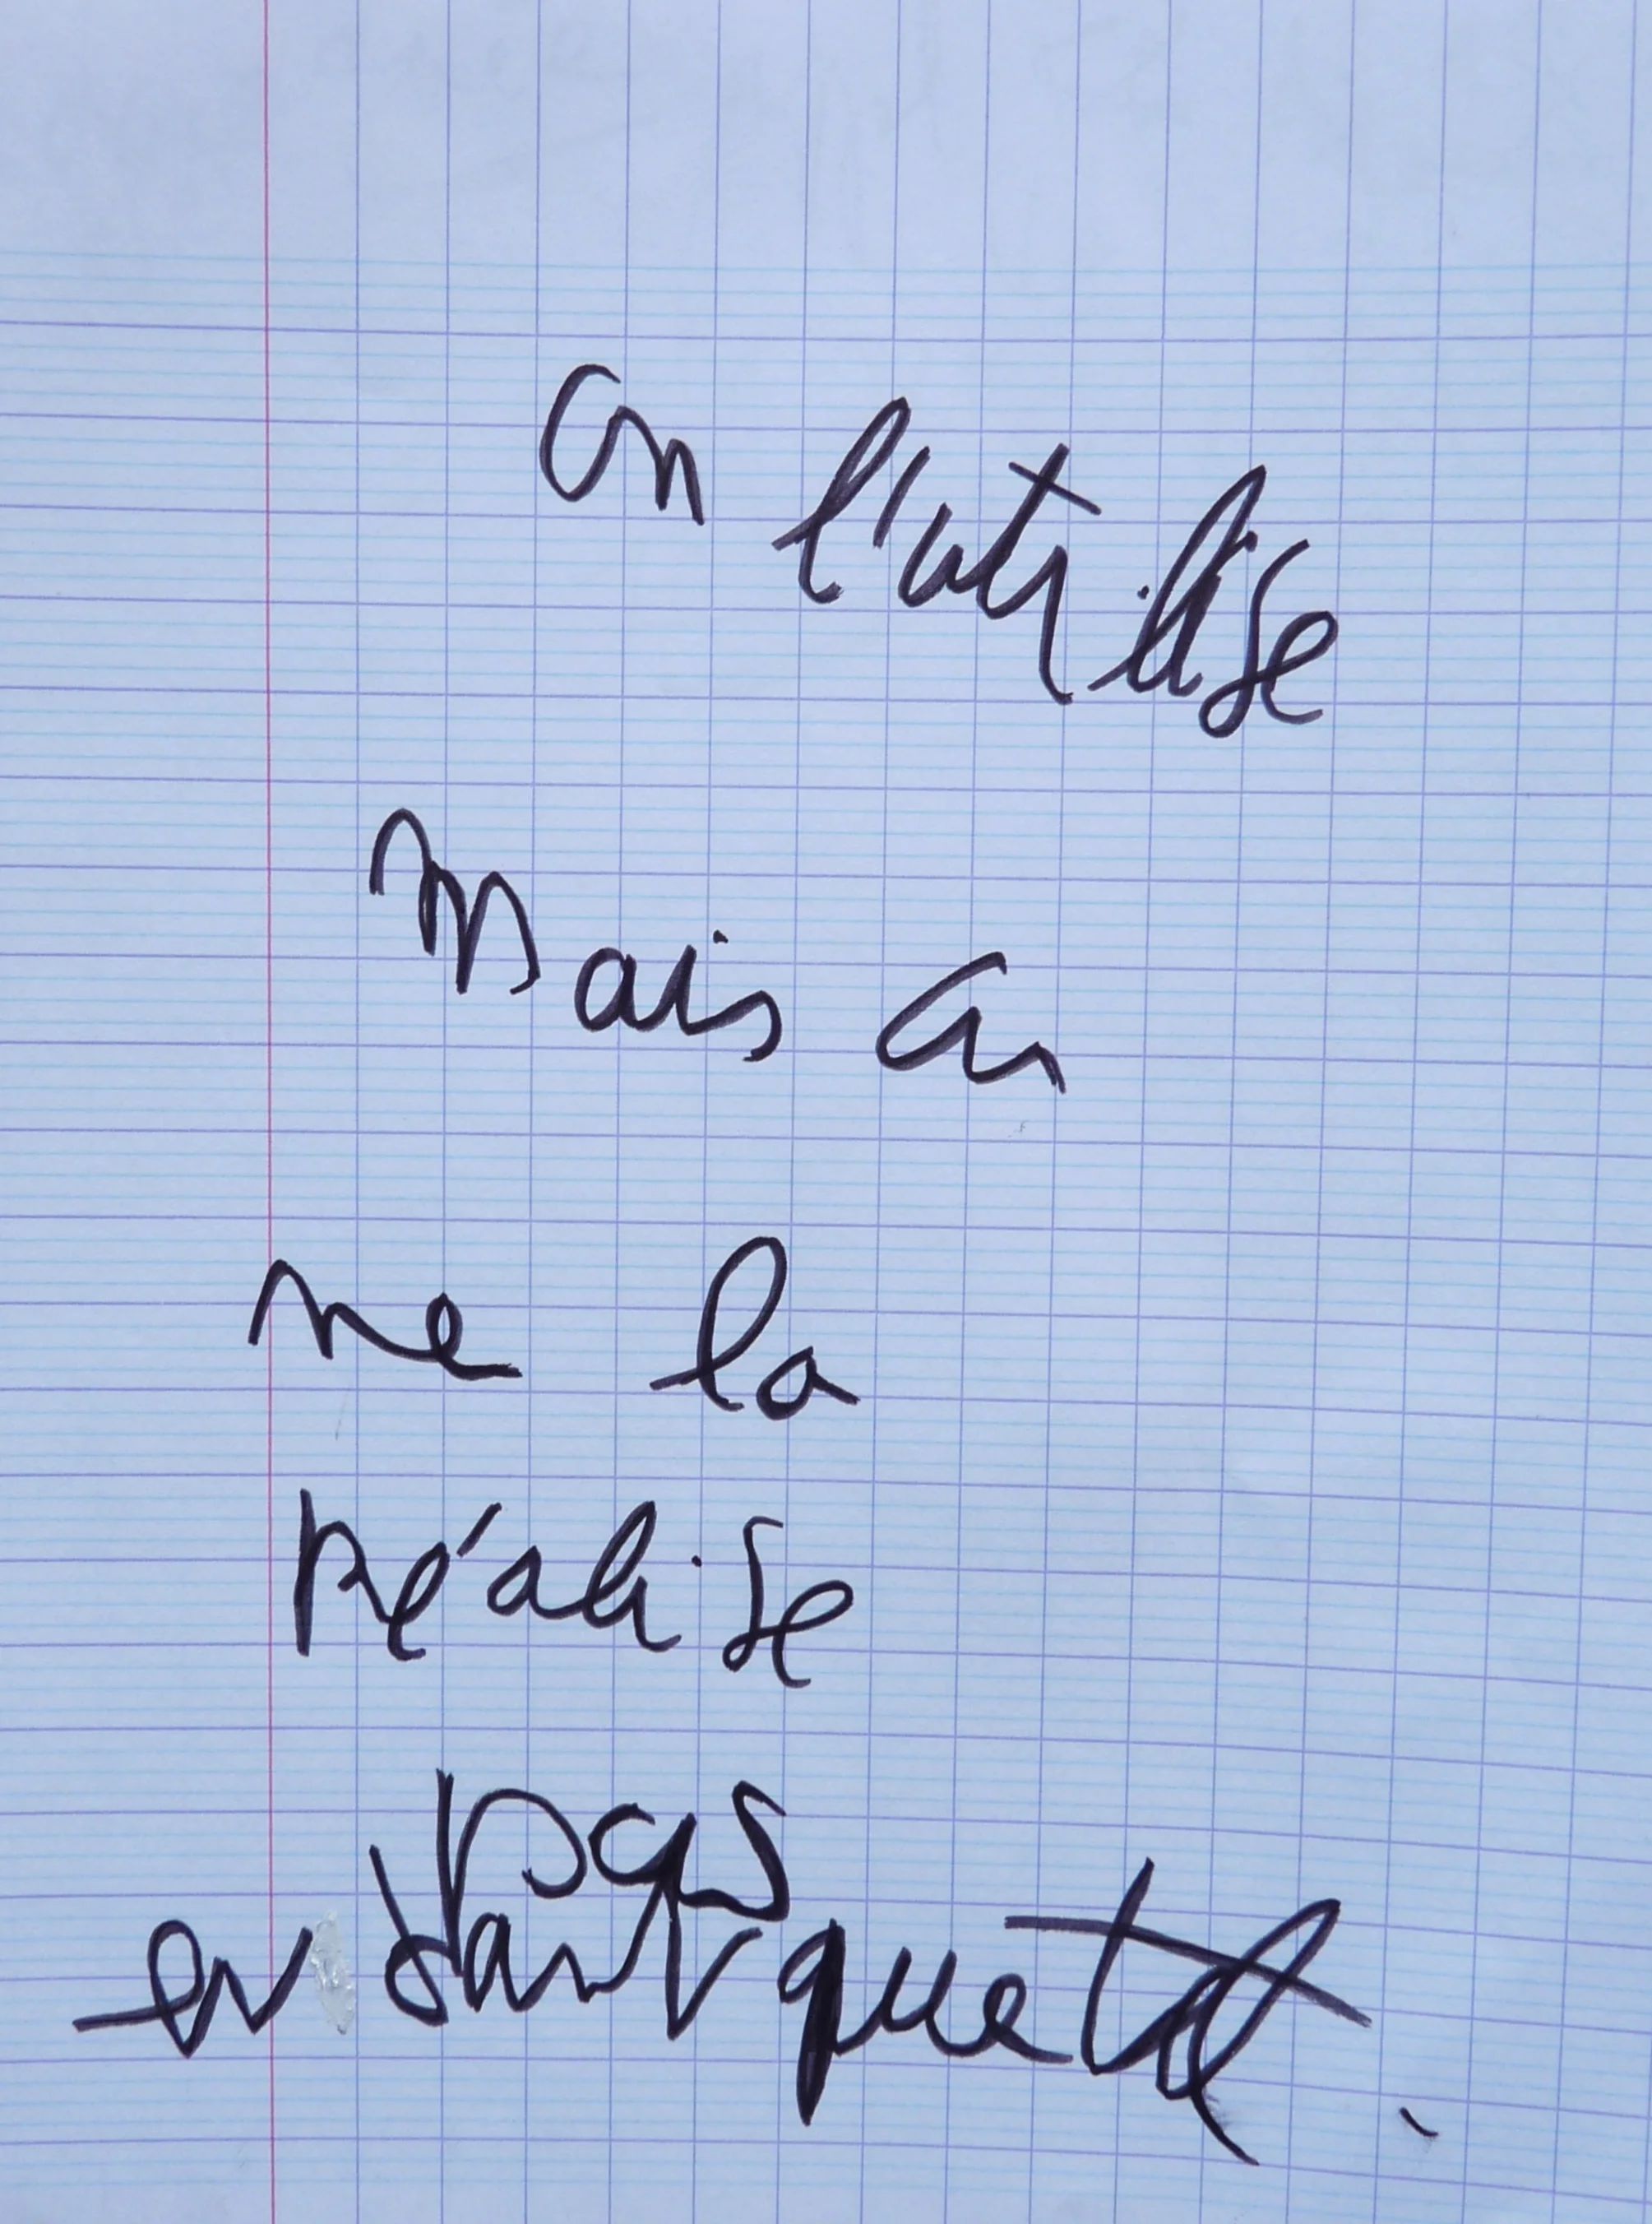 On l'utilise
Mais on
ne la
réalise
pas
en tant que tel.